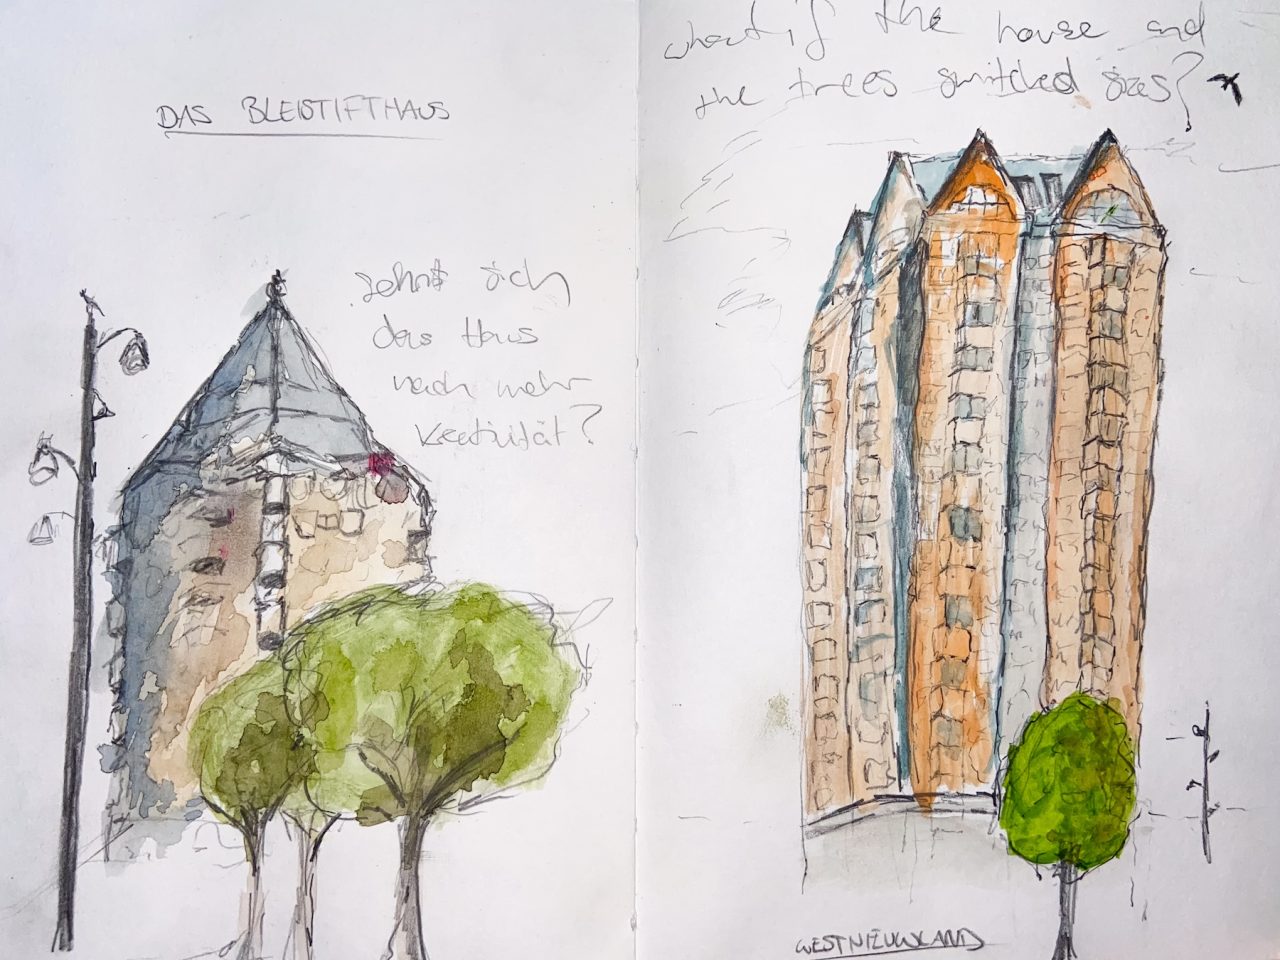 DAS BLEISTIFTHAUS
sehnt sich
das Haus
nach mehr
Kreativität?
what if the house and
the trees switched sizes?
WESTNIEUWLAND